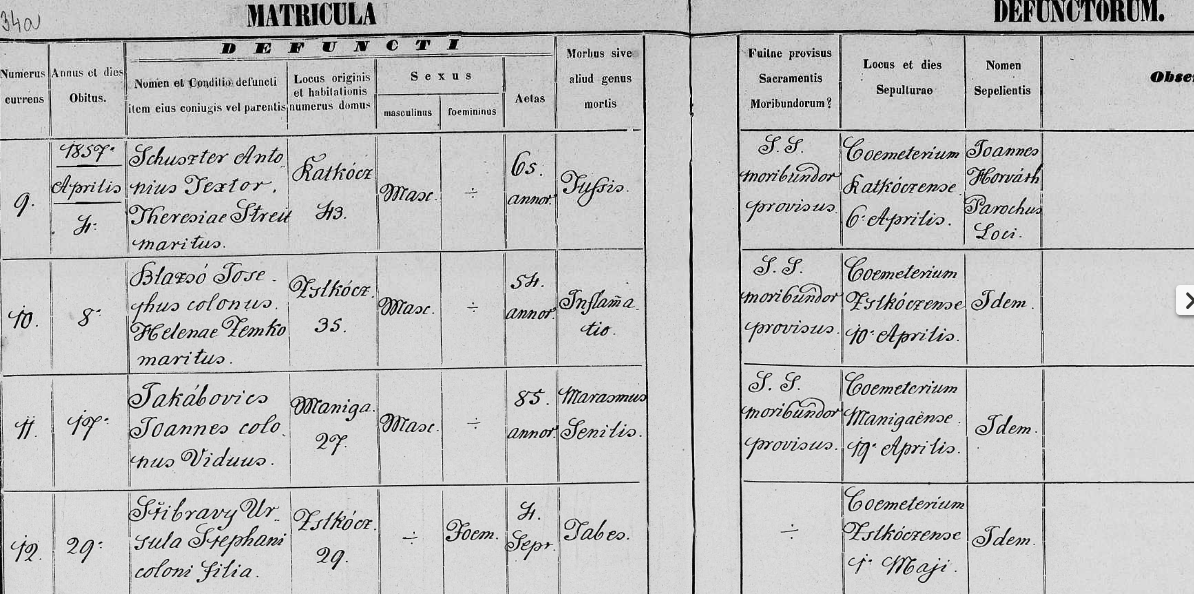 34a
MATRICULA
DEFUNCTORUM.
Numerus
currens
Annus et dies
Obitus.
DEFUNCTI
Nomen et Conditio defuncti
item eius coniugis vel parentis
Locus originis
et habitationis
numerus domus
Sexus
masculinus
foemininus
Aetas
Morbus sive
aliud genus
mortis
Fuitne provisus
Sacramentis
Moribundorum?
Locus et dies
Sepulturae
Nomen
Sepelientis
Obse
9.
1857.
Aprilis
4.
Schuszter Anto
nius Textor.
Theresiae Streit
maritus.
Katkócz
43.
Masc.
÷
65.
annor.
Tussis.
S. S.
moribundor
provisus.
Coemeterium
Katkóczense
6. Aprilis.
Joannes
Horváth
Parochus
Loci.
10.
8.
Blazsó Jose-
phus colonus.
Helenae Zemko
maritus.
Zslkócz.
35.
Masc.
÷
54.
annor.
Inflam̄a-
tio.
S. S.
moribundor
provisus.
Coemeterium
Zslkóczense
10. Aprilis.
Idem.
11.
17.
Jakábovics
Joannes colo-
nus Viduus.
Maniga.
27.
Masc.
÷
85.
annor.
Marasmus
Senilis.
S. S.
moribundor
provisus.
Coemeterium
Manigaènse.
19. Aprilis.
Idem.
12.
29.
Stibravy Ur-
sula Stephani
coloni filia.
Zslkócz.
29.
÷
Foem.
4.
Sept.
Tabes.
÷
Coemeterium
Zslkóczense
1. Maji.
Idem.